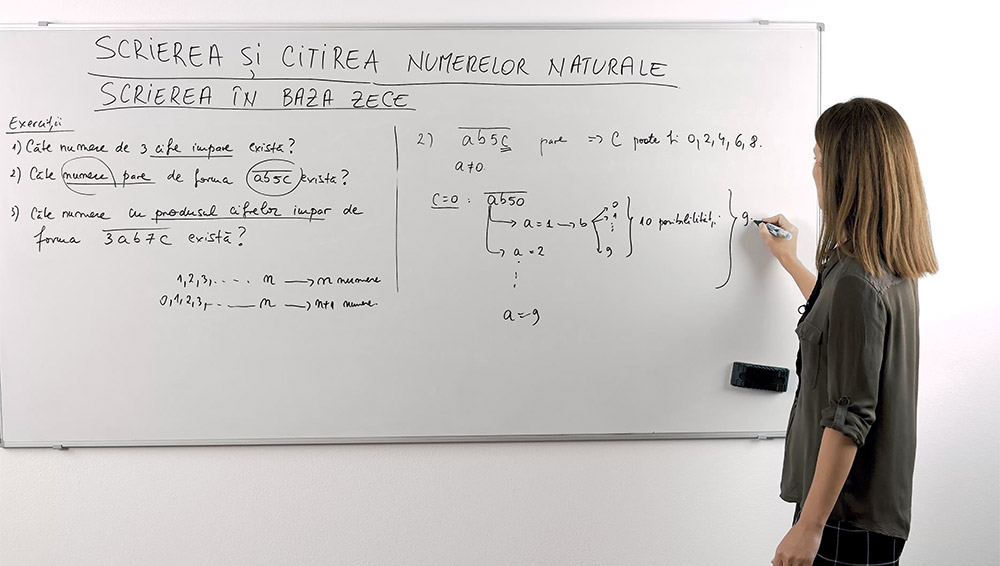 SCRIEREA ȘI CITIREA NUMERELOR NATURALE
SCRIEREA ÎN BAZA ZECE
Exerciții
1) Câte numere de 3 cifre impare există?
2) Câte numere pare de forma ab5c există?
3) Câte numere cu produsul cifrelor impar de
forma 3ab7c există?
1,2,3,.... n → n numere
0,1,2,3,.. n → n+1 numere.
2) ab5c pare => C poate fi 0, 2, 4, 6, 8.
a≠0
C=0 : ab50
a = 1 → b
0
1
⋮
9
} 10 posibilități
a = 2
⋮
a = 9
} 9.